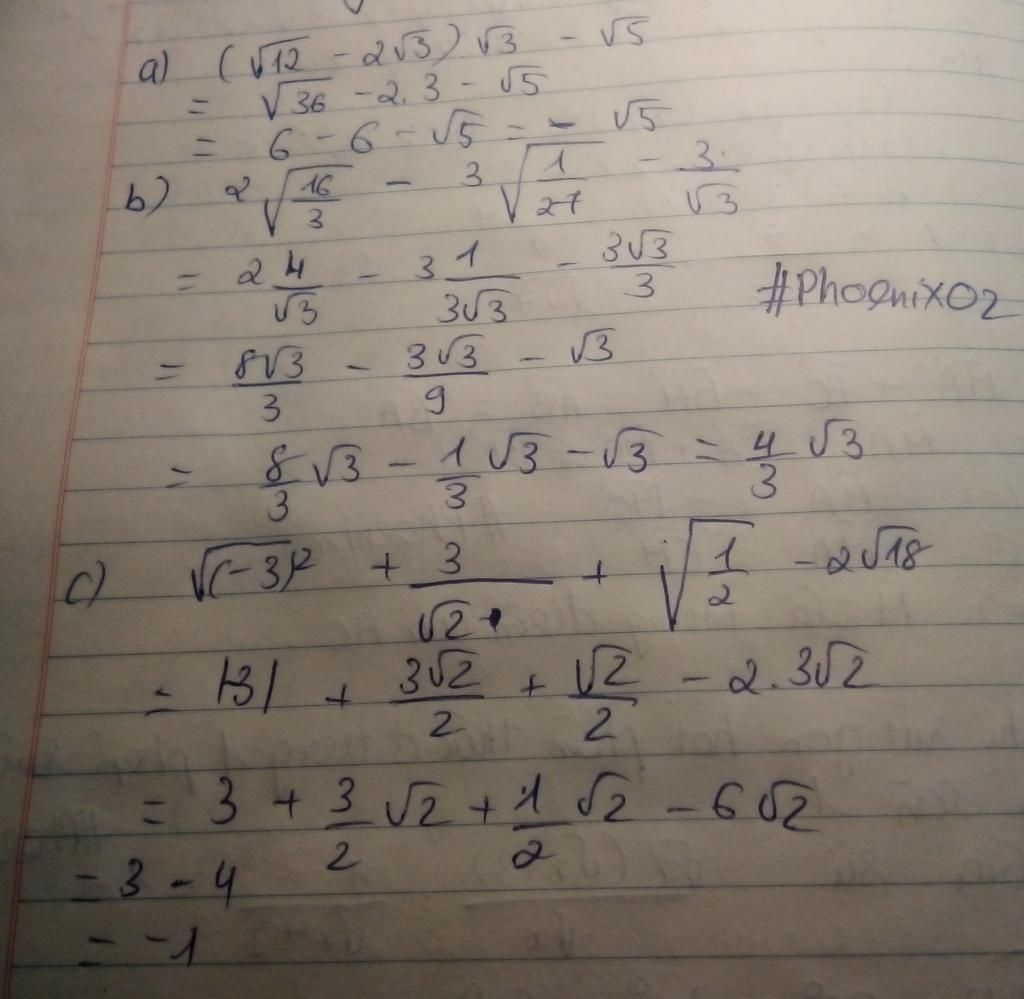 a) (√12 - 2√3) √3 - √5
= √36 - 2.3 - √5
= 6 - 6 - √5 = - √5
b) 2√(16/3) - 3√(1/27) - 3/√3
= 2 4/√3 - 3 1/3√3 - 3√3/3
#Phoenix02
= 8√3/3 - 3√3/9 - √3
= 8/3 √3 - 1/3 √3 - √3 = 4/3 √3
c) √(-3)² + 3/√2 + √(1/2) - 2√18
= |3| + 3√2/2 + √2/2 - 2.3√2
= 3 + 3/2 √2 + 1/2 √2 - 6√2
= 3 - 4
= -1